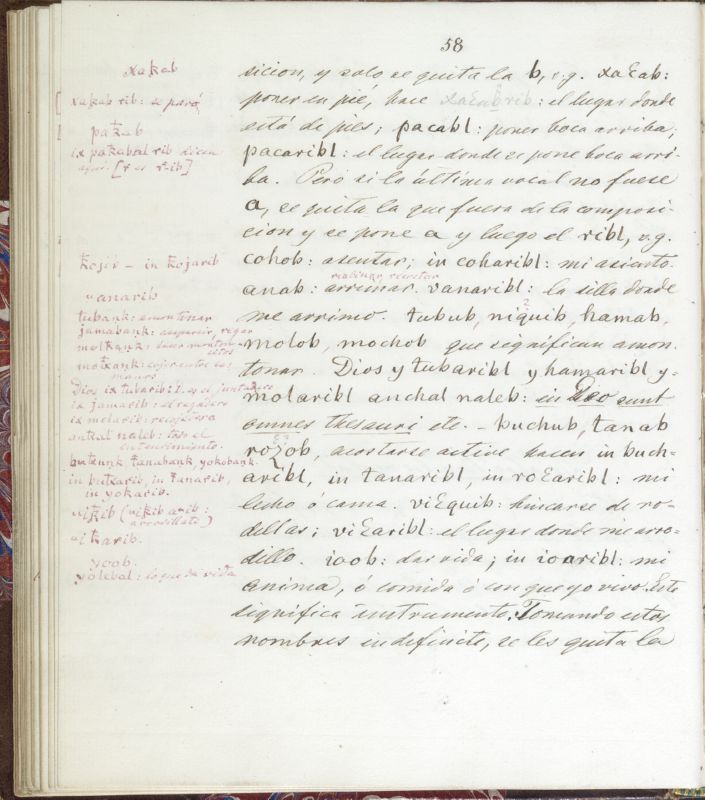 58
sicion, y solo se quita la b, v.g. xaƐab:
poner en pié, hace xaƐabrib: el lugar donde
está de pies; pacabl: poner boca arriba,
pacaribl: el lugar donde se pone boca arri-
ba. Pero si la última vocal no fuese
a, se quita la que fuera de la composi-
cion y se pone a y luego el ribl, v.g.
cohob: asentar; in coharibl: mi asiento.
reclinar recostar
anab: arrimar. vanaribl: la silla donde
me arrimo. tubub, niquib, hamab,
molob, mochob que significan amon-
tonar. Dios y tubaribl y hamaribl y=
molaribl anchal naleb: in Deo sunt
omnes thesauri etc. - buchub, tanab
roƐob, acostarse active hacen in buch=
aribl, in tanaribl, in roƐaribl: mi
lecho ó cama. viƐquib: hincarse de ro-
dillas; viƐaribl: el lugar donde me arro=
dillo. ioob: dar vida; in ioaribl: mi
anima, ó comida ó con que yo vivo. Este
significa instrumento. Tomando estos
nombres indefinite, se les quita la
xaꝁab
xaꝁab rib: se paró
paꝁab
ix paꝁabal rib dicen
aqui. [r es r-ib]
ꝁojóo - in ꝁojarib
uanarib
tubank: amontonar
jamabank: esparcir, regar
molꝁank: hacer monton-
citos
motxank: cojer entre las
manos
Dios ix tubarib: D. es el juntadero
ix jamarib: el regadero
ix molarib: recojedero
antxal naleb: todo el
entendimiento.
butxunk tanabank, yokobank.
in butxarib, in tanarib,
in yokarib.
uiꝁib (uiꝁib arib:
arrodillate)
uiꝁarib.
yoob.
yolebal: lo que da vida